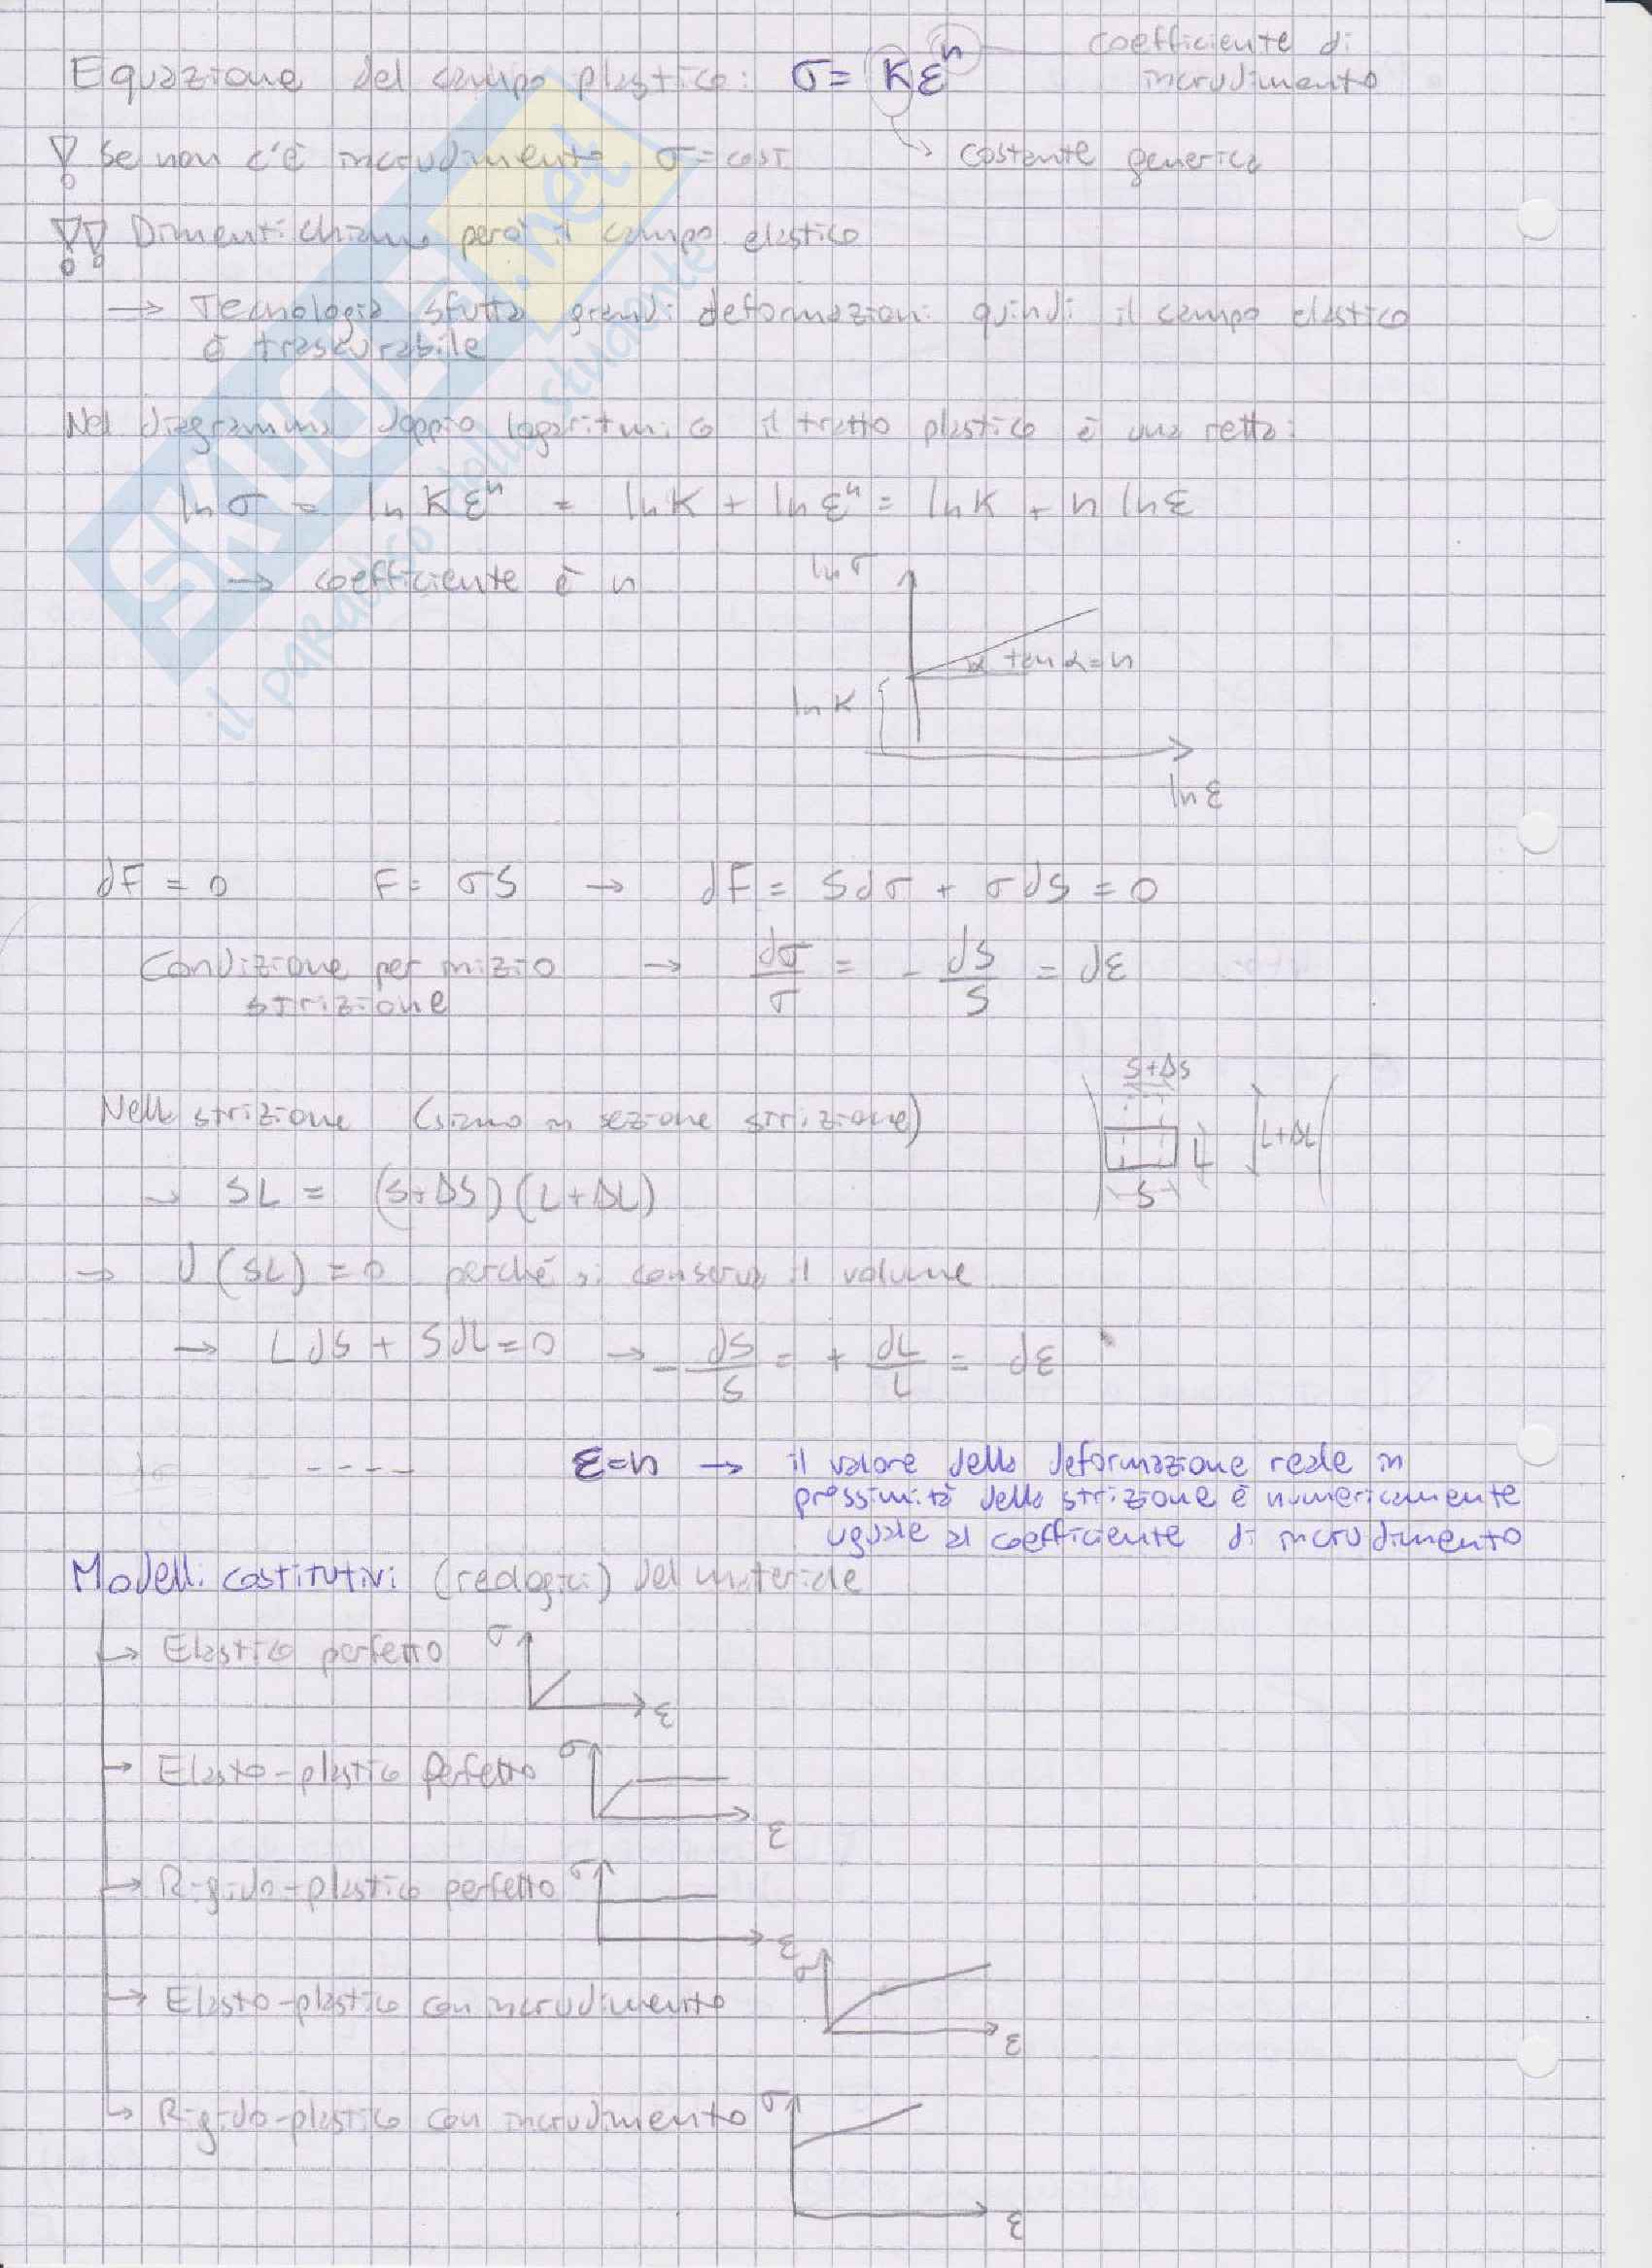 Equazione del campo plastico: σ = Kεⁿ
coefficiente di
incrudimento
costante generica
Se non c'è incrudimento σ = cost
Dimentichiamo però il campo elastico
→ Tecnologia sfutta grandi deformazioni quindi il campo elastico
è trascurabile
Nel diagramma doppio logaritmico il tratto plastico è una retta:
ln σ = ln Kεⁿ = ln K + ln εⁿ = ln K + n ln ε
→ coefficiente è n
ln σ
α tan α = n
ln K
ln ε
dF = 0 F = σS → dF = S dσ + σ dS = 0
Condizione per inizio → dσ/σ = - dS/S = dε
strizione
S+ΔS
Nella strizione (siamo in sezione strizione)
L L+ΔL
S
→ SL = (S+ΔS)(L+ΔL)
→ d(SL) = 0 perché si conserva il volume
→ L dS + S dL = 0 → - dS/S = + dL/L = dε
---- ε = n → il valore della deformazione reale in
pressimità della strizione è numericamente
uguale al coefficiente di incrudimento
Modelli costitutivi (reologici) del materiale
→ Elastico perfetto σ ε
→ Elasto-plastico perfetto σ ε
→ Rigido-plastico perfetto σ ε
→ Elasto-plastico con incrudimento σ ε
→ Rigido-plastico con incrudimento σ ε
SKUOLA.net
il paradiso dello studente